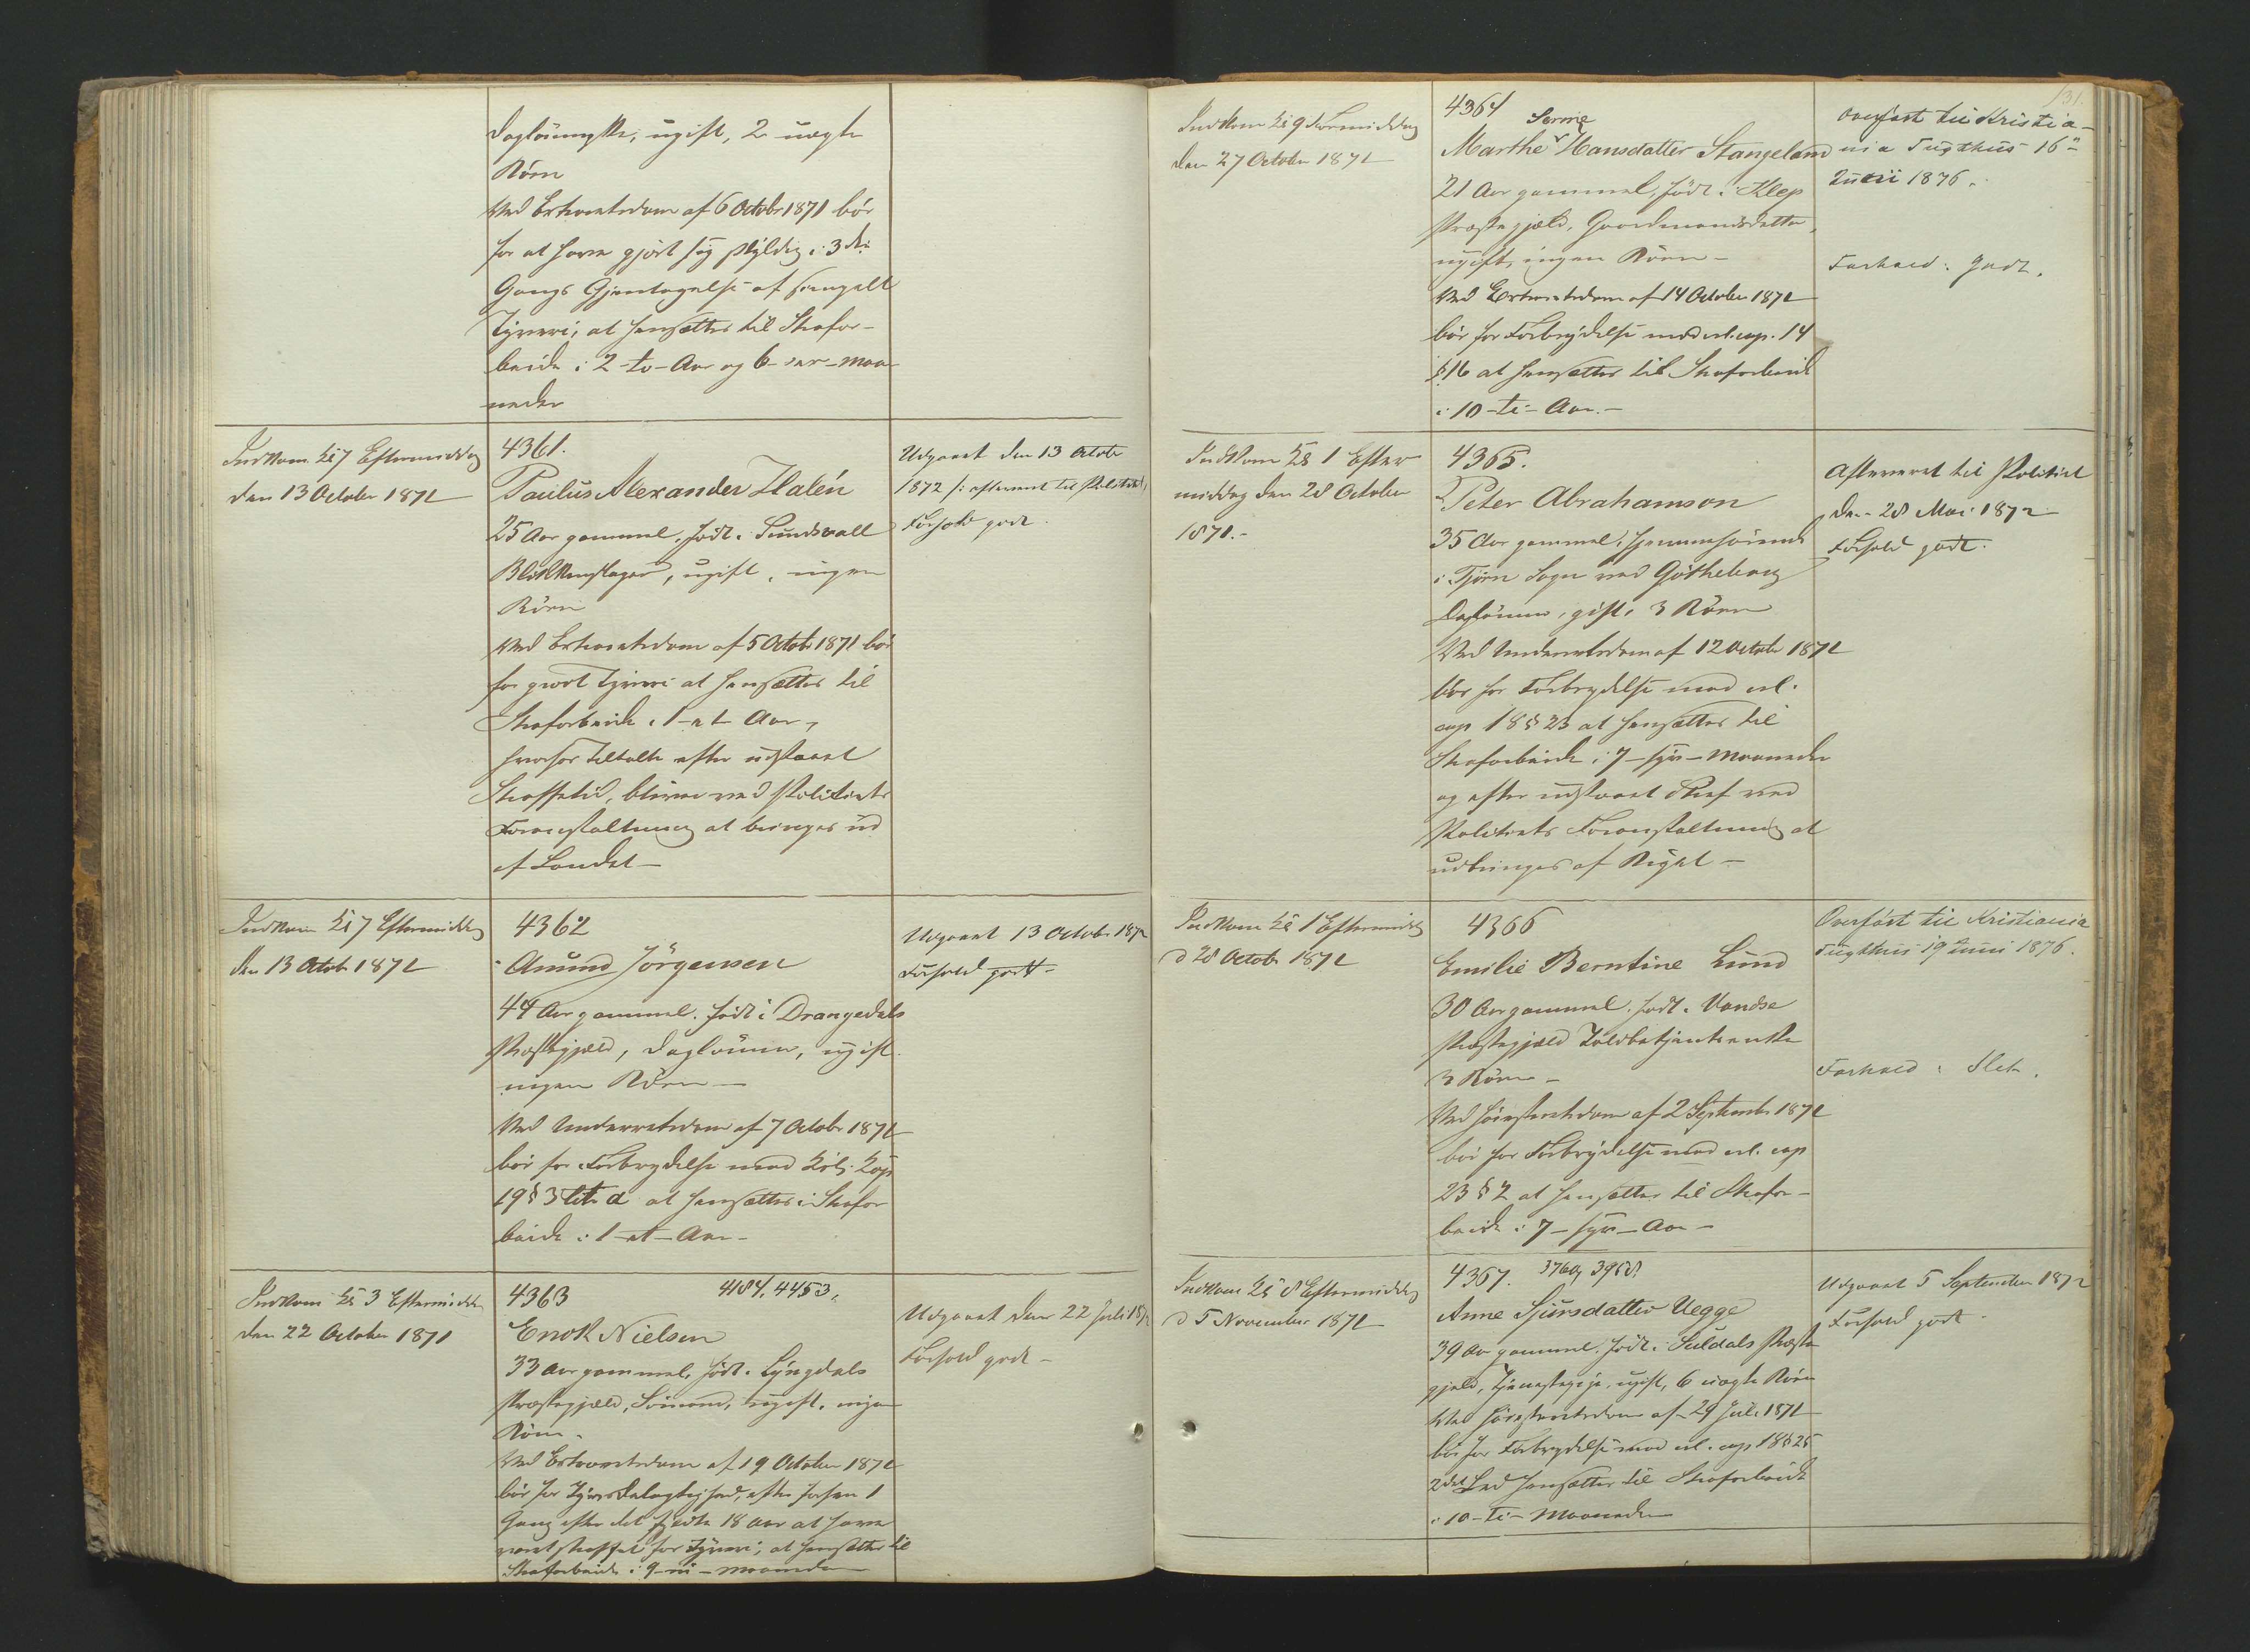 dagløinerske, ugift, 2 uægte
Børn
Ved Extraretsdom af 6 Octobr 1871 bør
for at have gjort sig skyldig i 3die
Gangs Gjentagelse af simpelt
Tyveri, at hensættes til Strafar-
beide i 2-to-Aar og 6-sex-Maa-
neder
Indkom Kl 7 Eftermiddag
den 13 October 1871
4361.
Paulus Alexander Halén
25 Aar gammel, født i Sundsvall
Blikkenslager, ugift, ingen
Børn
Ved Extraretsdom af 5 Octobr 1871 bør
for grovt Tyveri at hensættes til
Strafarbeide i 1-et Aar,
hvorhos Tiltalte efter udstaaet
Straffetid, bliver ved Politiets
Foranstaltning at bringes ud
af Landet -
Udgaaet den 13 Octobr
1872 /: afleveret til Politiet
Forhold godt.
Indkom Kl 7 Eftermiddag
den 13 Octob 1871
4362
Amund Jörgensen
44 Aar gammel. født i Drangedals
Præstegjæld, dagløinner, ugift
ingen Børn -
Ved Underretsdom af 7 Octobr 1871
bør for Forbrydelse mod Kjl. Kap
19 § 3 litr a at hensættes i Strafar
beide i 1-et-Aar-
Udgaaet 13 Octobr 1872
Forhold godt-
Indkom Kl 3 Eftermiddag
den 22 October 1871
4363 4184. 4453.
Enok Nielsen
33 Aar gammel, født i Lyngdals
Præstegjæld, Sømand, ugift, ingen
Børn.
Ved Extraretsdom af 19 October 1871
bør for Tyvsdelagtighed, efter forhen 1
Gang efter det fyldte 18 Aar at have
været straffet for Tyveri, at hensættes til
Strafarbeide i 9-ni-Maaneder
Udgaaet den 22 Juli 1872
Forhold godt -
131.
Indkom Kl 9 Formiddag
den 27 October 1871
4364
Serine
Marthe Hansdatter Stangeland
21 Aar gammel, født i Klep
Præstegjæld, Gaardmandsdatter,
ugift, ingen Børn -
Ved Extraretsdom af 14 October 1871
bør for Forbrydelse mod crl. cap. 14
§ 16 at hensættes til Strafarbeide
i 10-ti-Aar.-
Overført til Kristia-
nia Tugthus 16de
Juni 1876.
Forhold: Godt.
Indkom Kl 1 Efter
middag den 28 October
1871.-
4365.
Peter Abrahamson
35 Aar gammel, hjemmehørende
i Tjörn Sogn ved Götheborg
Dagløinner, gift, 3 Børn
Ved Underretsdom af 12 Octobr 1871
bør for Forbrydelse mod crl.
cap 18 § 23 at hensættes til
Strafarbeide i 7-syv-Maaneder
og efter udstaaet Straf ved
Politiets Foranstaltning at
udbringes af Riget -
Afleveret til Politiet
den 28 Mai 1872
Forhold godt.
Indkom Kl 1 Eftermiddag
d 28 Octobr 1871
4366
Emilie Berntine Lund
30 Aar gammel. født i Vandse
Præstegjæld Toldbetjentenke
3 Børn -
Ved Høiesteretsdom af 2 Septembr 1871
bør for Forbrydelse mod crl. cap
23 § 2 at hensættes til Strafar-
beide i 7-syv-Aar-
Overført til Kristiania
Tugthus 19 Juni 1876.
Forhold: Slet.
Indkom Kl 8 Eftermiddag
d 5 November 1871
4367. 3760, 3968.
Anne Sjursdatter Vegge
39 Aar gammel, født i Suldals Præste
gjæld, Tjenestepige, ugift, 6 uægte Børn
Ved Høiesteretsdom af 29 Juli 1871
bør for Forbrydelse mod crl. cap 18 § 25
2det Led hensættes til Strafarbeide
i 10-ti-Maaneder
Udgaaet 5 September 1872
Forhold godt.